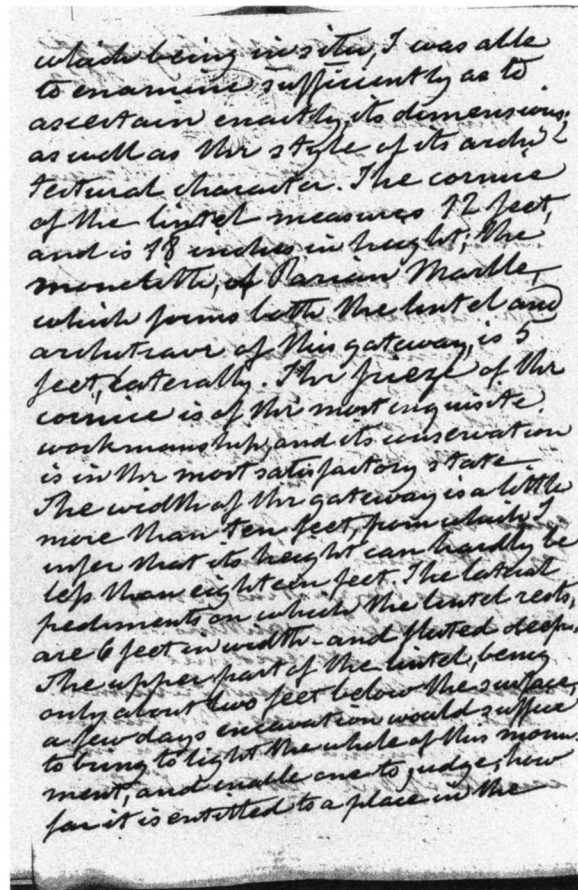 which being in situ, I was able
to examine sufficiently as to
ascertain exactly, its dimensions,
as well as the style of its archi-
tectural character. The cornice
of the lintel measures 12 feet,
and is 18 inches in height; the
monolith, of Parian Marble,
which forms both the lintel and
architrave of this gateway, is 5
feet, laterally. The frieze of the
cornice is of the most exquisite
workmanship, and its conservation
is in the most satisfactory state
The width of the gateway is a little
more than ten feet, from which I
infer that its height can hardly be
less than eighteen feet. The lateral
pediments on which the lintel rests,
are 6 feet in width - and fluted deeply.
The upper part of the lintel, being
only about two feet below the surface,
a few days excavation would suffice
to bring to light the whole of this monu-
ment, and enable one to judge, how
far it is entitled to a place in the